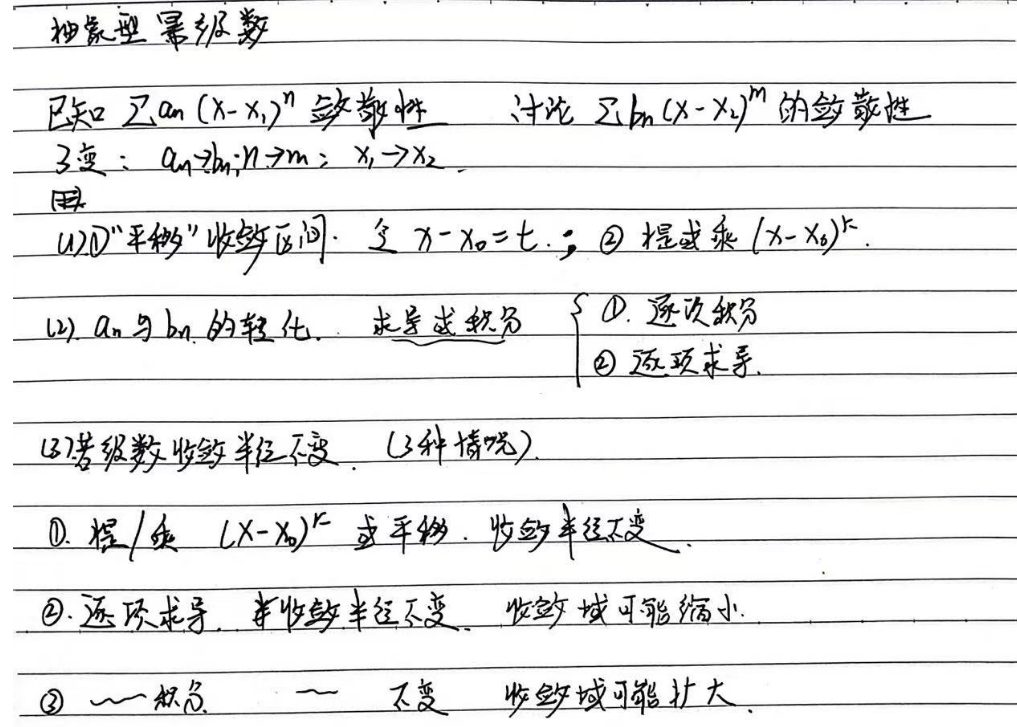 抽象型幂级数
已知 Σan (x-x₁)ⁿ 敛散性 讨论 Σbn (x-x₂)ᵐ 的敛散性
3变: an→bn; n→m; x₁→x₂.
用
(1)①"平移"收敛区间. 令 x-x₀=t.; ② 提或乘 (x-x₀)ᵏ.
(2). an与bn的转化. 求导或积分 { ①. 逐项积分
② 逐项求导.
(3)若级数收敛半径不变. (3种情况).
①. 提/乘 (x-x₀)ᵏ 或平移. 收敛半径不变.
②. 逐项求导. 收敛半径不变. 收敛域可能缩小.
③ ~~积分. ~ 不变 收敛域可能扩大.